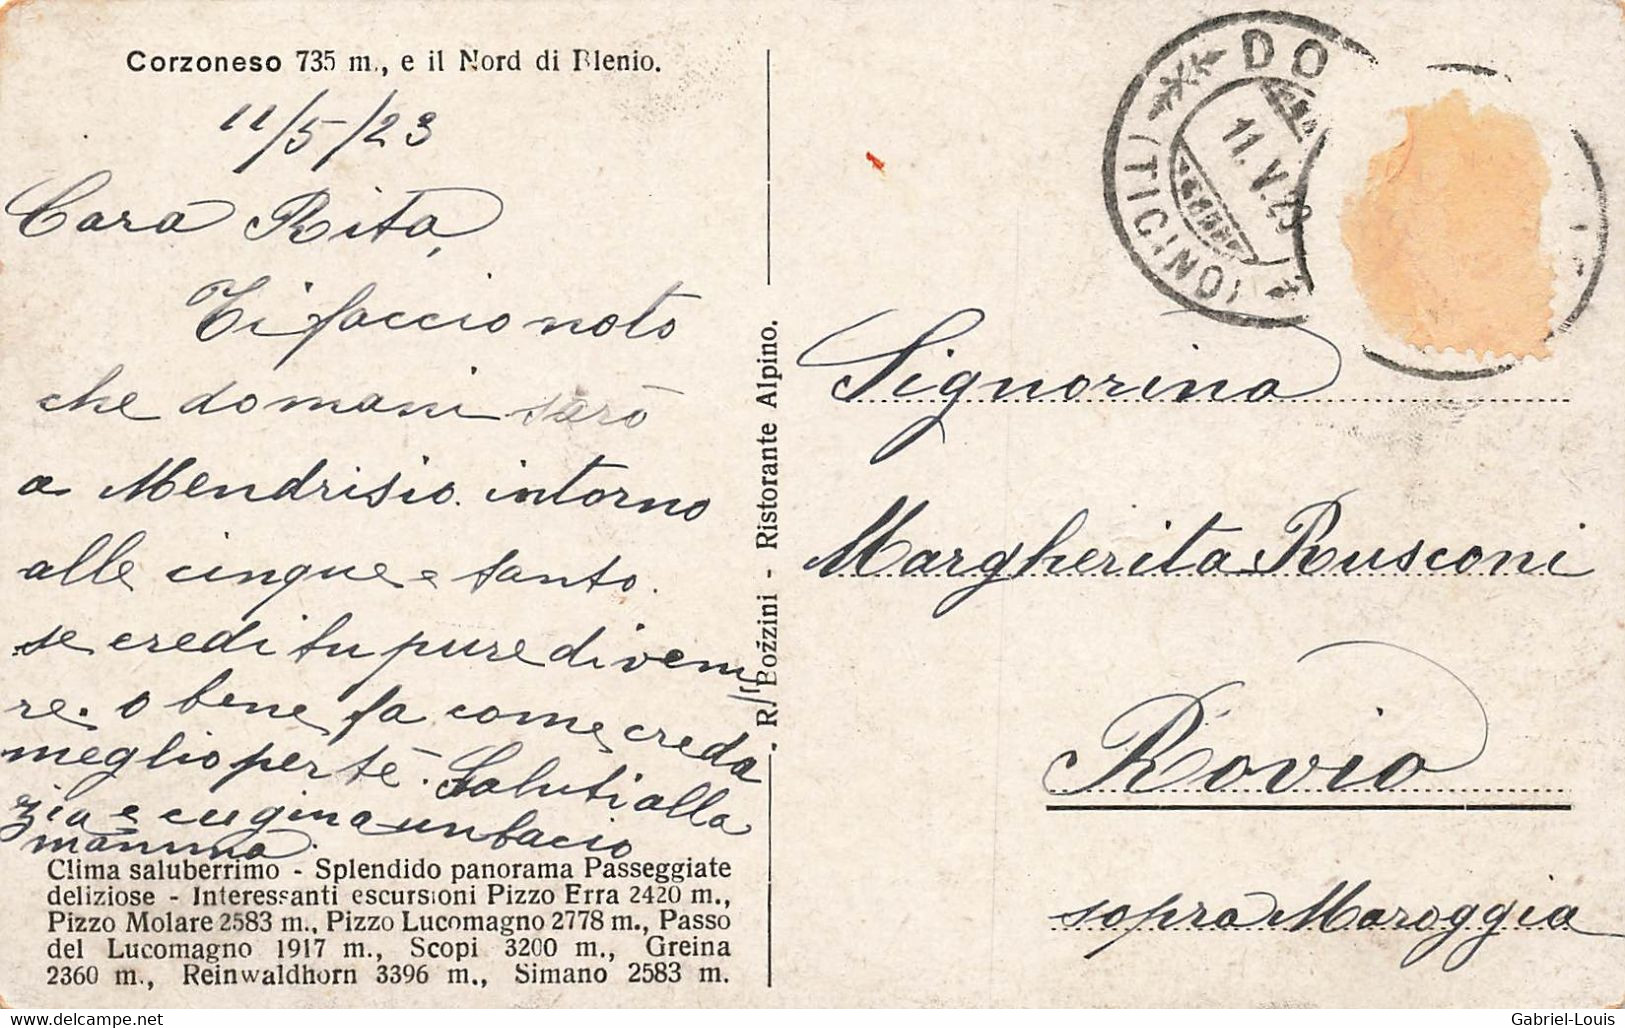 Corzoneso 735 m., e il Nord di Blenio.
11/5/23
Cara Rita,
Ti faccio noto
che domani sarò
a Mendrisio. intorno
alle cinque e tanto.
se credi tu pure di veni
re. o bene fa come creda
meglio per te. Saluti alla
zia e cugina un bacio
mamma.
Clima saluberrimo - Splendido panorama Passeggiate
deliziose - Interessanti escursioni Pizzo Erra 2420 m.,
Pizzo Molare 2583 m., Pizzo Lucomagno 2778 m., Passo
del Lucomagno 1917 m., Scopi 3200 m., Greina
2360 m., Reinwaldhorn 3396 m., Simano 2583 m.
R. Bozzini - Ristorante Alpino.
DO
11.V.23
(TICINO)
Signorina
Margherita Rusconi
Rovio
sopra Maroggia
hippostcard.com
Gabriel-Louis